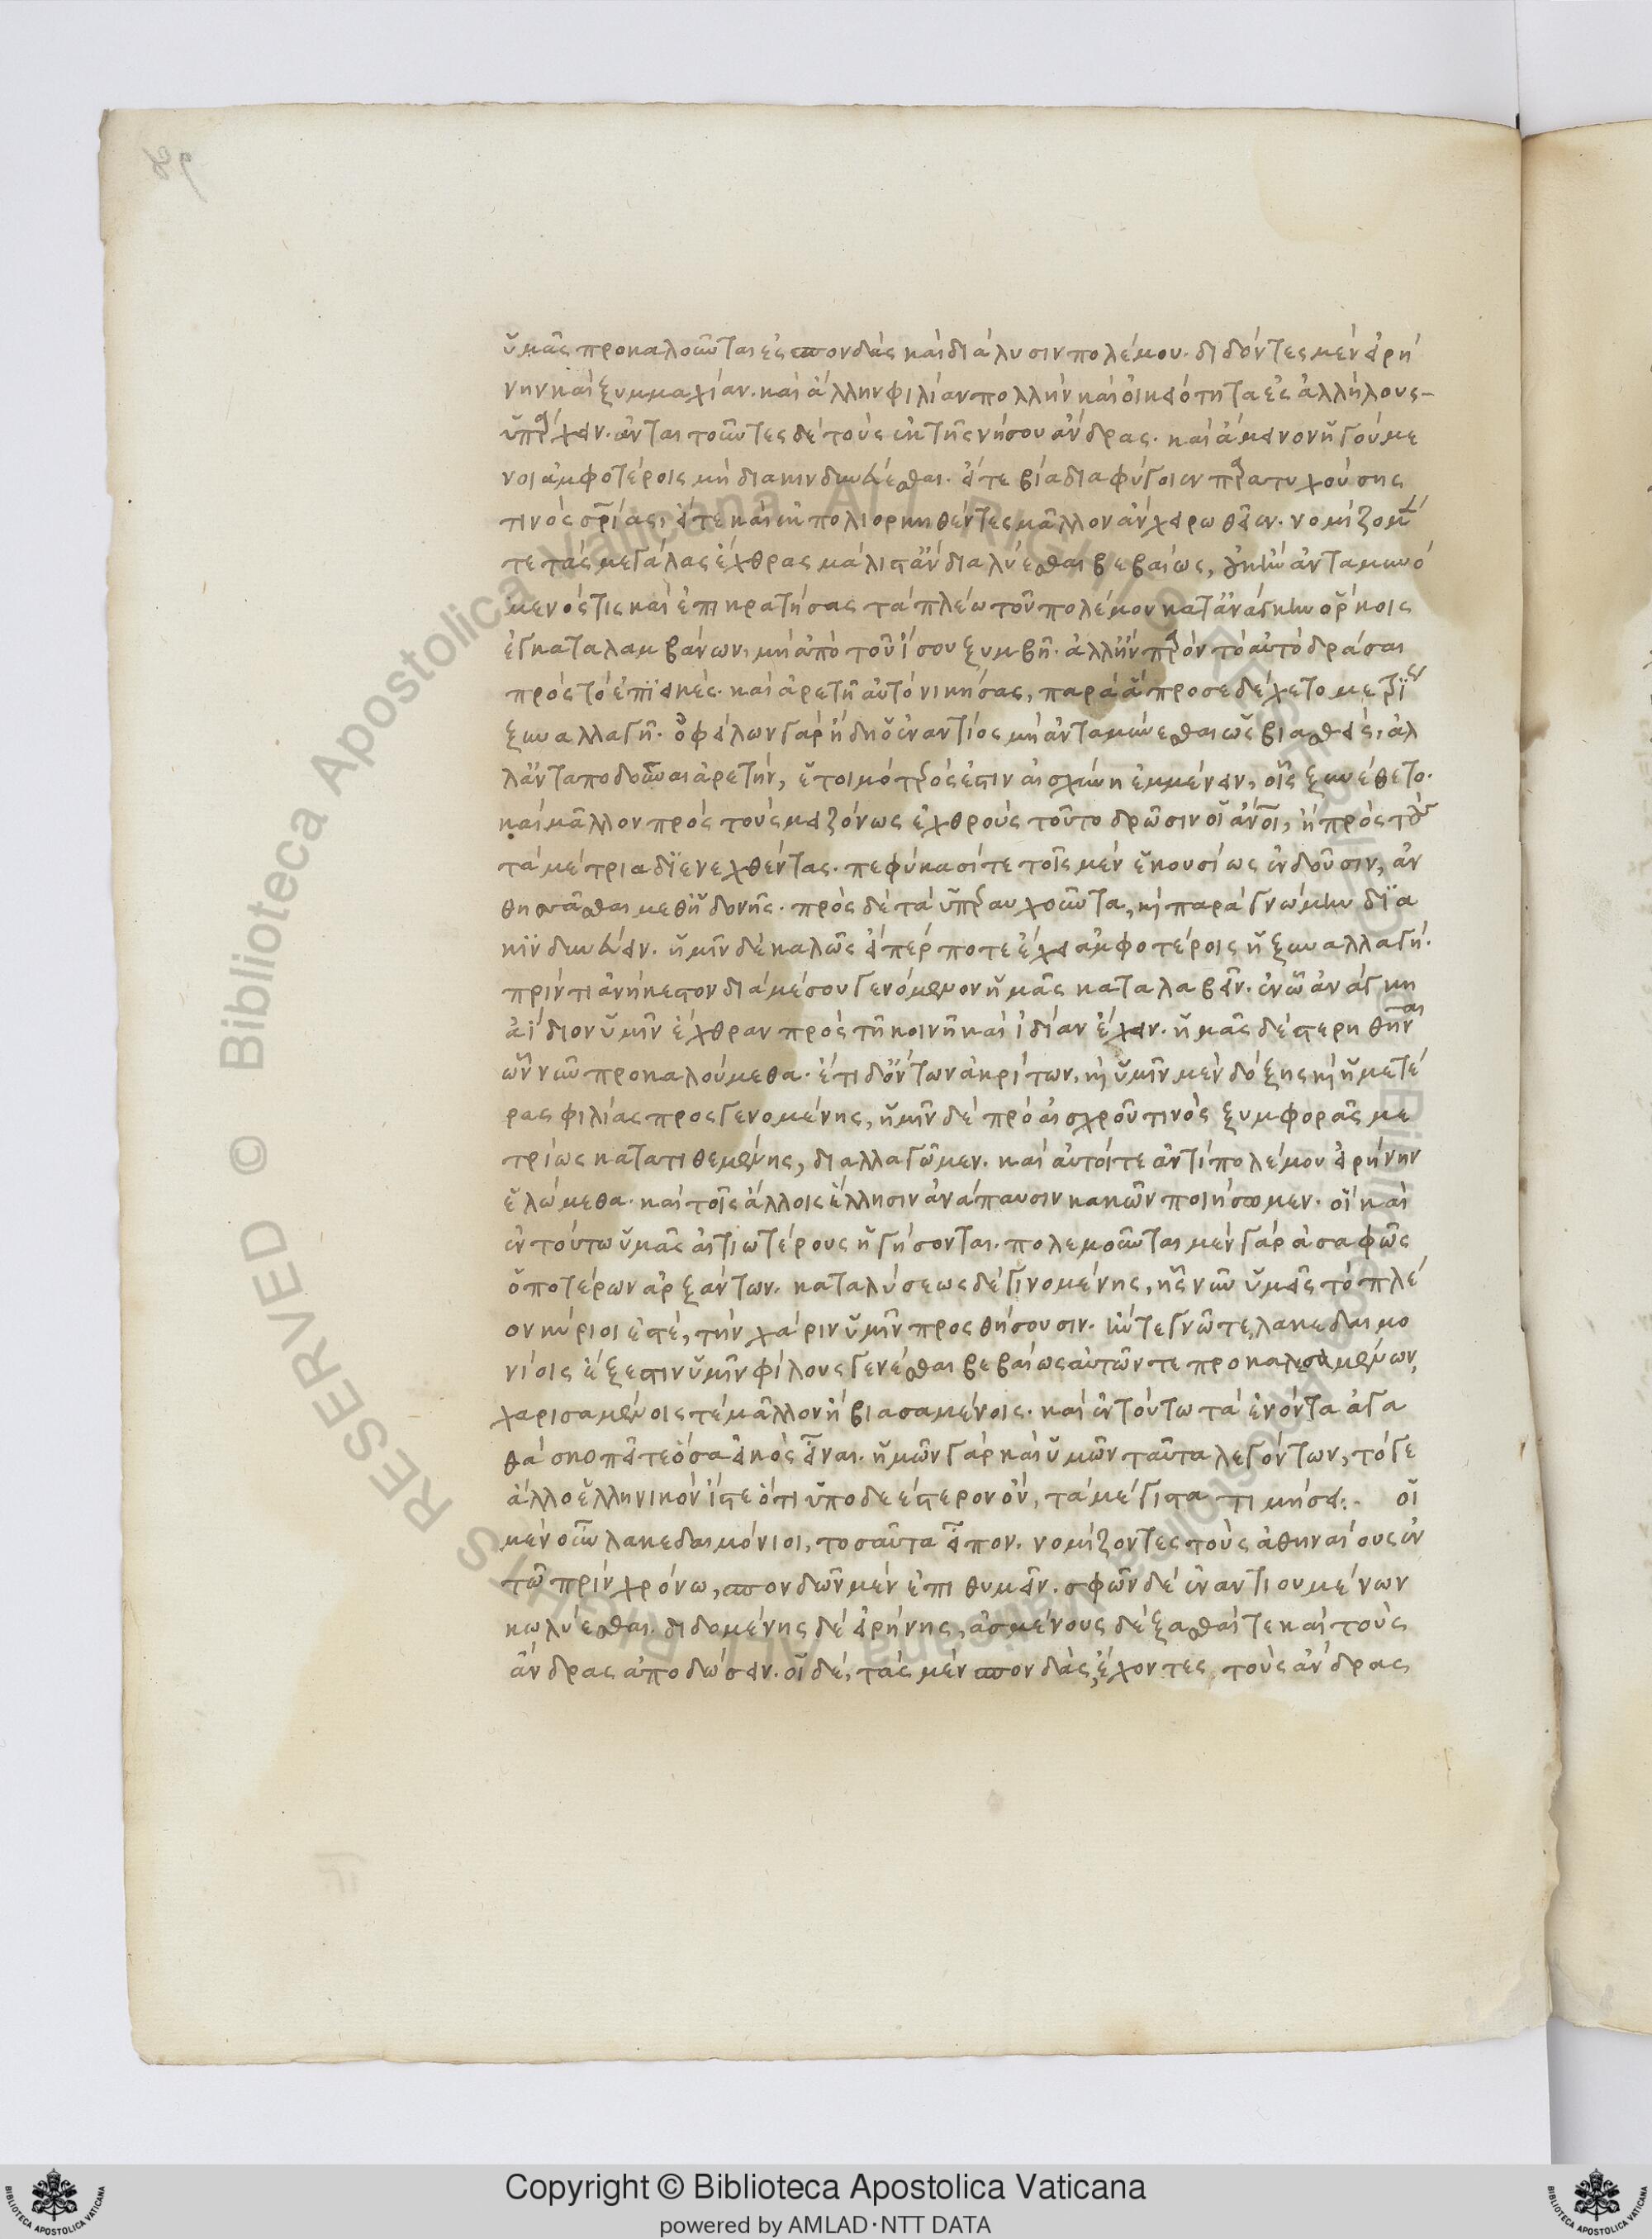 ὑμᾶς προκαλοῦνται ἐς σπονδὰς καὶ διάλυσιν πολέμου. διδόντες μὲν εἰρή
νην καὶ ξυμμαχίαν. καὶ ἄλλην φιλίαν πολλὴν καὶ οἰκειότητα ἐς ἀλλήλους
ὑπάρχειν. ἀνταιτοῦντες δὲ τοὺς ἐκ τῆς νήσου ἄνδρας. καὶ ἄμεινον ἡγούμε
νοι ἀμφοτέροις μὴ διακινδυνεύεσθαι. εἴτε βία διαφύγοιεν παρατυχούσης
τινὸς σωτηρίας, εἴτε καὶ ἐκπολιορκηθέντες μᾶλλον ἂν χειρωθεῖεν. νομίζομέν
τε τὰς μεγάλας ἔχθρας μάλιστ' ἂν διαλύεσθαι βεβαίως, οὐκ ἢν ἀνταμυνό
μενός τις καὶ ἐπικρατήσας τὰ πλέω τοῦ πολέμου κατ' ἀνάγκην ὅρκοις
ἐγκαταλαμβάνων, μὴ ἀπὸ τοῦ ἴσου ξυμβῆ. ἀλλ' ἢν παρὸν τὸ αὐτὸ δρᾶσαι
πρὸς τὸ ἐπιεικὲς. καὶ ἀρετῆ αὐτὸ νικήσας, παρὰ ἃ προσεδέχετο μετρίως
ξυναλλαγῆ. ὀφείλων γὰρ ἤδη ὁ ἐναντίος μὴ ἀνταμύνεσθαι ὡς βιασθεὶς, ἀλ
λ' ἀνταποδοῦναι ἀρετὴν, ἑτοιμότερός ἐστιν αἰσχύνη ἐμμένειν, οἷς ξυνέθετο.
καὶ μᾶλλον πρὸς τοὺς μειζόνως ἐχθροὺς τοῦτο δρῶσιν οἱ ἄνθρωποι, ἢ πρὸς τοὺς
τὰ μέτρια διενεχθέντας. πεφύκασί τε τοῖς μὲν ἑκουσίως ἐνδοῦσιν, ἀν
θησσᾶσθαι μεθ' ἡδονῆς. πρὸς δὲ τὰ ὑπεραυχοῦντα, καὶ παρὰ γνώμην δια
κινδυνεύειν. ἡμῖν δὲ καλῶς εἴπερ ποτὲ ἔχει ἀμφοτέροις ἡ ξυναλλαγή.
πρίν τι ἀνήκεστον διὰ μέσου γενόμενον ἡμᾶς καταλαβεῖν. ἐν ᾧ ἀνάγκη
ἀΐδιον ὑμῖν ἔχθραν πρὸς τῆ κοινῆ καὶ ἰδίαν ἔχειν. ἡμᾶς δὲ στερηθῆναι
ὧν νῦν προκαλούμεθα. ἔτι δ' ὄντων ἀκρίτων, καὶ ὑμῖν μὲν δόξης καὶ ἡμετέ
ρας φιλίας προσγενομένης, ἡμῖν δὲ πρὸ αἰσχροῦ τινὸς ξυμφορᾶς με
τρίως κατατιθεμένης, διαλλαγῶμεν. καὶ αὐτοί τε ἀντὶ πολέμου εἰρήνην
ἑλώμεθα. καὶ τοῖς ἄλλοις ἕλλησιν ἀνάπαυσιν κακῶν ποιήσωμεν. οἳ καὶ
ἐν τούτω ὑμᾶς αἰτιωτέρους ἡγήσονται. πολεμοῦνται μὲν γὰρ ἀσαφῶς
ὁποτέρων ἀρξάντων. καταλύσεως δὲ γινομένης, ἧς νῦν ὑμεῖς τὸ πλέ
ον κύριοι ἐστέ, τὴν χάριν ὑμῖν προσθήσουσιν. ἤν τε γνῶτε, λακεδαιμο
νίοις ἔξεστιν ὑμῖν φίλους γενέσθαι βεβαίως αὐτῶν τε προκαλεσαμένων,
χαρισαμένοις τὲ μᾶλλον ἢ βιασαμένοις. καὶ ἐν τούτω τὰ ἐνόντα ἀγα
θὰ σκοπεῖτε ὅσα εἰκὸς εἶναι. ἡμῶν γὰρ καὶ ὑμῶν ταῦτα λεγόντων, τό γε
ἄλλο ἑλληνικὸν ἴστε ὅτι ὑποδεέστερον ὂν, τὰ μέγιστα τιμήσει. οἱ
μὲν οὖν λακεδαιμόνιοι, τοσαῦτα εἶπον. νομίζοντες τοὺς ἀθηναίους ἐν
τῶ πρὶν χρόνω, σπονδῶν μὲν ἐπιθυμεῖν. σφῶν δὲ ἐναντιουμένων
κωλύεσθαι. διδομένης δὲ εἰρήνης, ἀσμένους δέξασθαί τε καὶ τοὺς
ἄνδρας ἀποδώσειν. οἱ δὲ, τὰς μὲν σπονδὰς, ἔχοντες τοὺς ἄνδρας